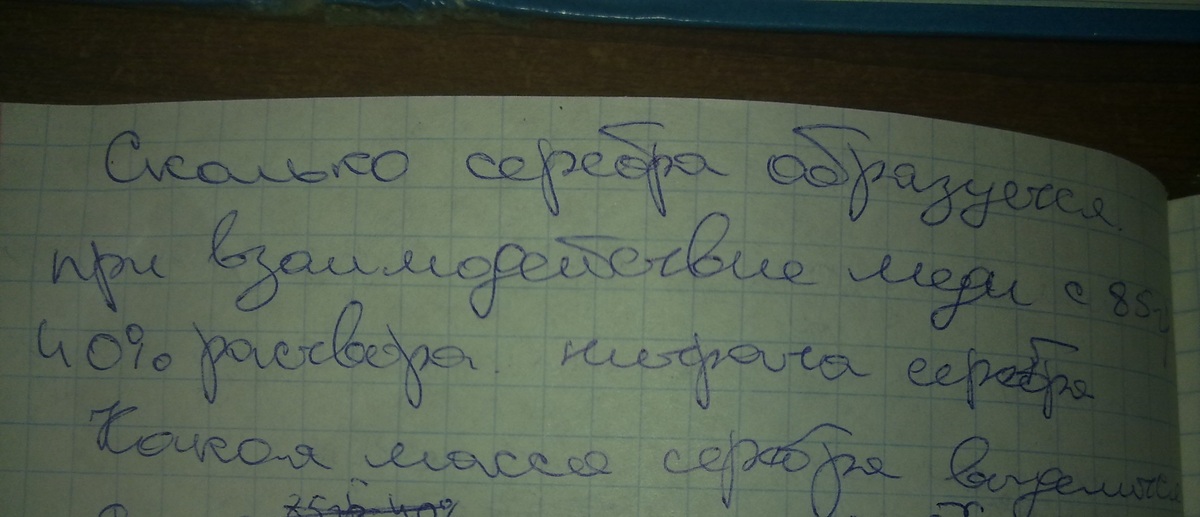 Сколько серебра образуется
при взаимодействие меди с 85г
40% раствора. нитрата серебра
Какая масса серебра выделится